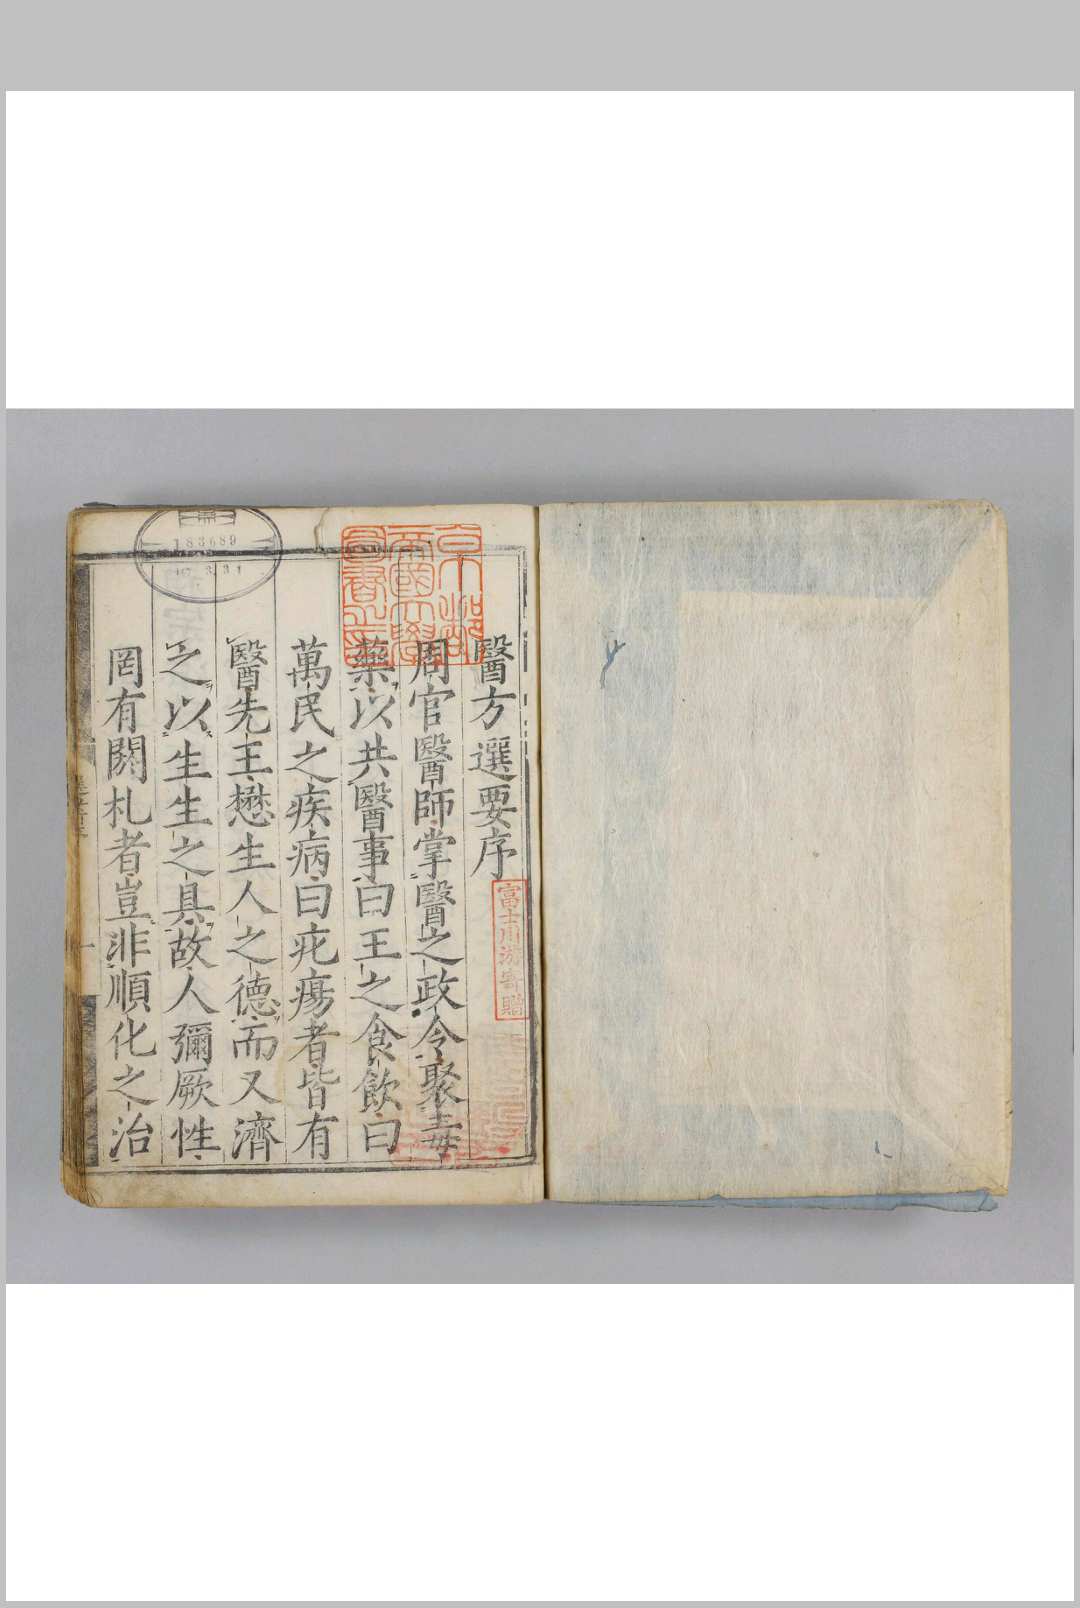 醫方選要序
周官醫師掌醫之政令聚毒
藥以共醫事曰王之食飲曰
萬民之疾病曰疕瘍者皆有
醫先王懋生人之德而又濟
之以生生之具故人彌厥性
罔有閼札者豈非順化之治
京都
帝國大學
圖書之印
富士川游寄贈
183689